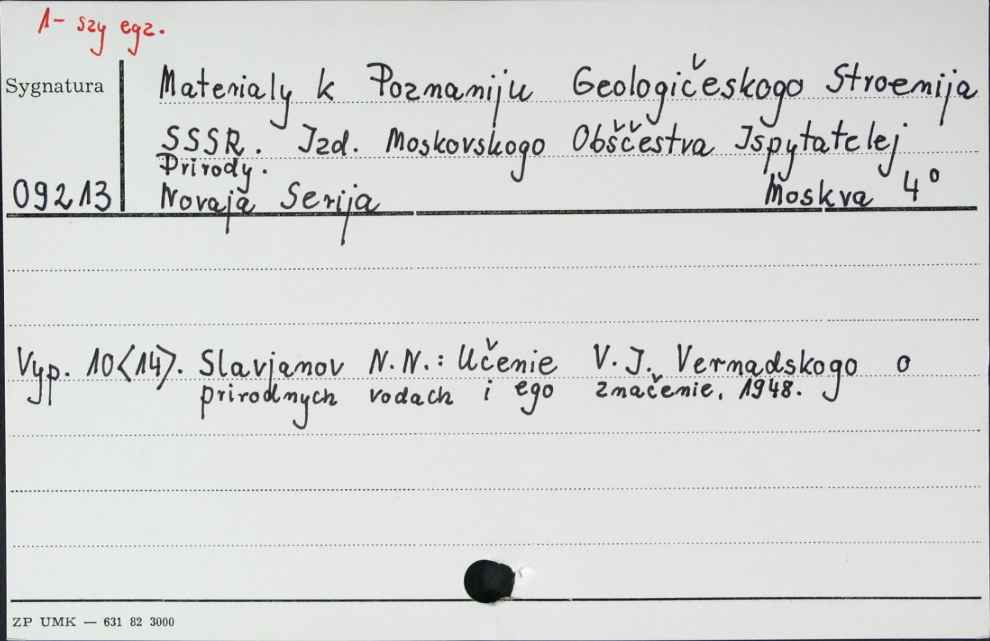 1-szy egz.
Sygnatura
Materialy k Poznaniju Geologičeskogo Stroenija
SSSR. Izd. Moskovskogo Obščestva Ispytatelej
Prirody.
09213
Novaja Serija Moskva 4°
Vyp. 10<14>. Slavjanov N.N.: Učenie V.I. Vernadskogo o
prirodnych vodach i ego značenie. 1948.
ZP UMK — 631 82 3000